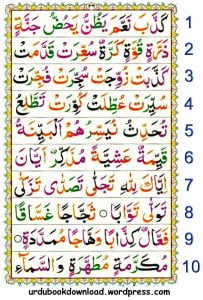 كَذَّبَ نَعَّمَ يَظُنُّ يَحُضُّ جَنَّةٍ 1
ذَرَّةٍ قُوَّةٍ كَرَّةٌ سُعِّرَتْ قَدَّمَتْ 2
كَذَّبَتْ زُوِّجَتْ سُجِّرَتْ فُجِّرَتْ 3
سُيِّرَتْ عُطِّلَتْ كُوِّرَتْ تَطَّلِعُ 4
تُحَدِّثُ نُيَسِّرُ هُمُ الْبَيِّنَةُ 5
قَيِّمَةٌ عَشِيَّةً مُذَكِّرٌ اَيَّانَ 6
اِيَّاكَ لِلّٰهِ تَجَلّٰى تَصَدّٰى تَزَكّٰى 7
تَوَلّٰى تَوَّابًا ○ ثَجَّاجًا غَسَّاقًا 8
فَعَّالٌ كِذَّابًا ○ وَهَّاجًا مُمَدَّدَةٍ ○ 9
مُكَرَّمَةٍ مُطَهَّرَةٍ وَالسَّمَآءِ 10
urdubookdownload.wordpress.com